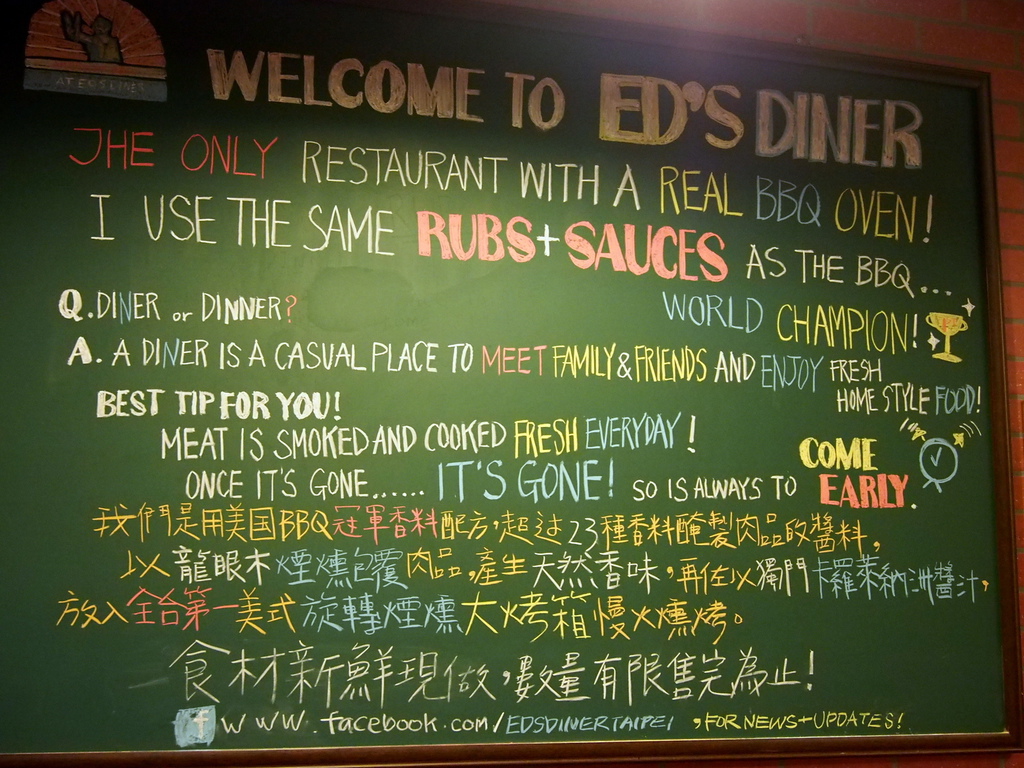 AT ED'S DINER
WELCOME TO ED'S DINER
THE ONLY RESTAURANT WITH A REAL BBQ OVEN!
I USE THE SAME RUBS+SAUCES AS THE BBQ...
WORLD CHAMPION!
Q. DINER or DINNER?
A. A DINER IS A CASUAL PLACE TO MEET FAMILY & FRIENDS AND ENJOY FRESH
HOME STYLE FOOD!
BEST TIP FOR YOU!
MEAT IS SMOKED AND COOKED FRESH EVERYDAY!
ONCE IT'S GONE...... IT'S GONE! SO IS ALWAYS TO COME
EARLY.
我們是用美国BBQ冠軍香料配方,超过23種香料醃製肉品的醬料,
以龍眼木煙燻包覆肉品,產生天然香味,再佐以獨門卡羅萊納州醬汁,
放入全台第一美式旋轉煙燻大烤箱慢火燻烤。
食材新鮮現做,數量有限售完為止!
f www.facebook.com/EDSDINERTAIPEI, FOR NEWS+UPDATES!